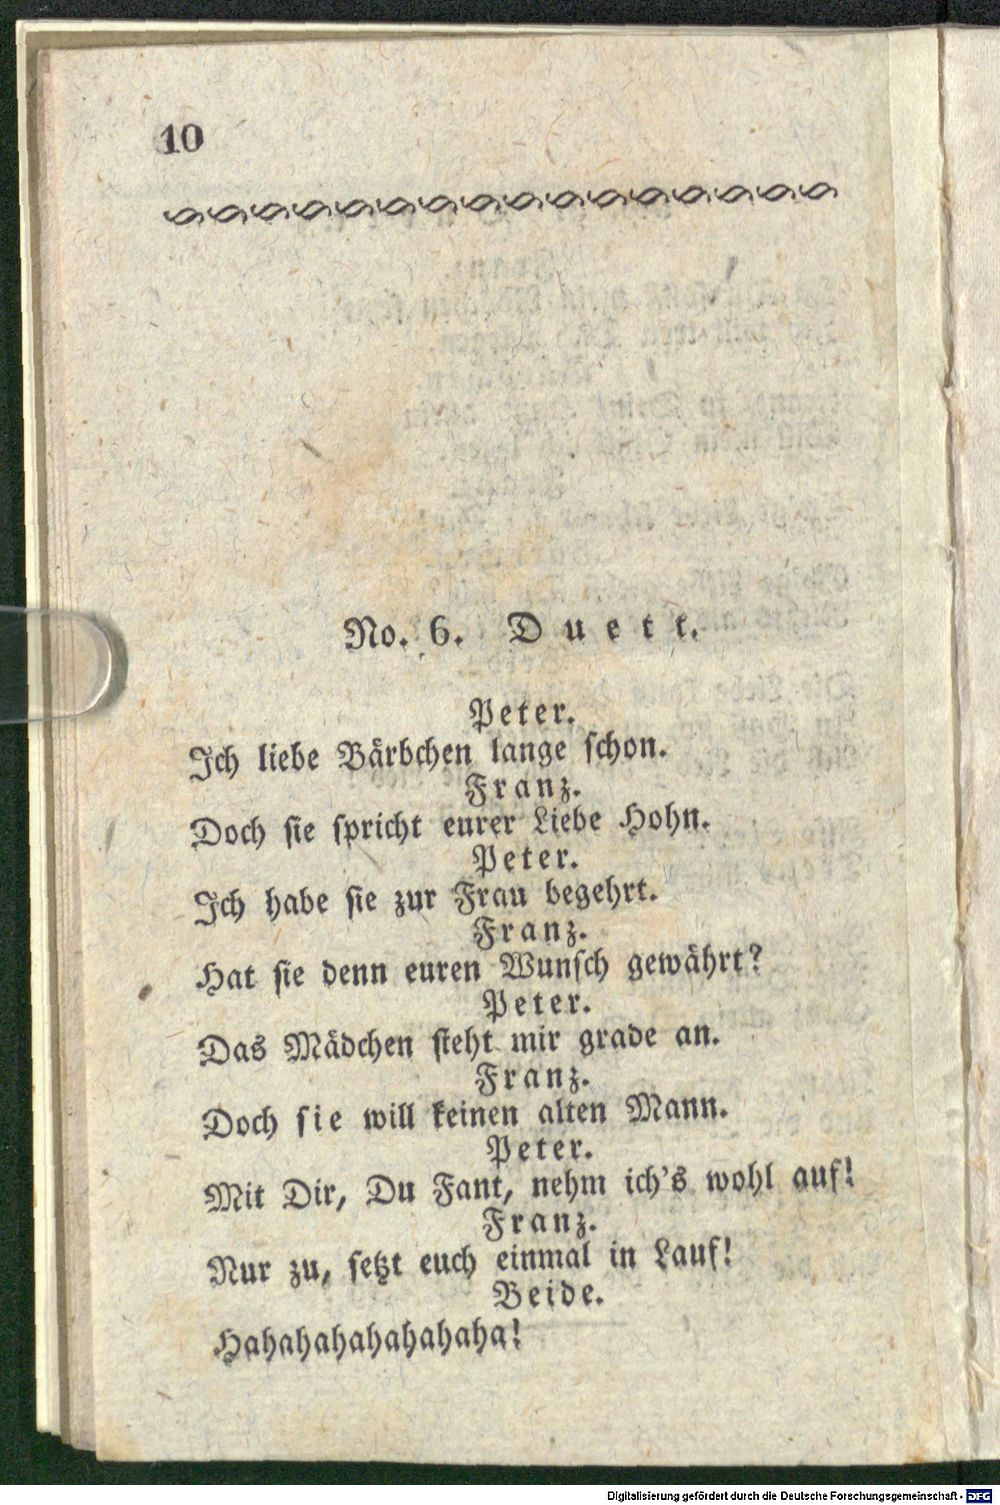 10
No. 6. Duett.
Peter.
Ich liebe Bärbchen lange schon.
Franz.
Doch sie spricht eurer Liebe Hohn.
Peter.
Ich habe sie zur Frau begehrt.
Franz.
Hat sie denn euren Wunsch gewährt?
Peter.
Das Mädchen steht mir grade an.
Franz.
Doch sie will keinen alten Mann.
Peter.
Mit Dir, Du Fant, nehm ich's wohl auf!
Franz.
Nur zu, setzt euch einmal in Lauf!
Beide.
Hahahahahahahaha!
Digitalisierung gefördert durch die Deutsche Forschungsgemeinschaft - DFG